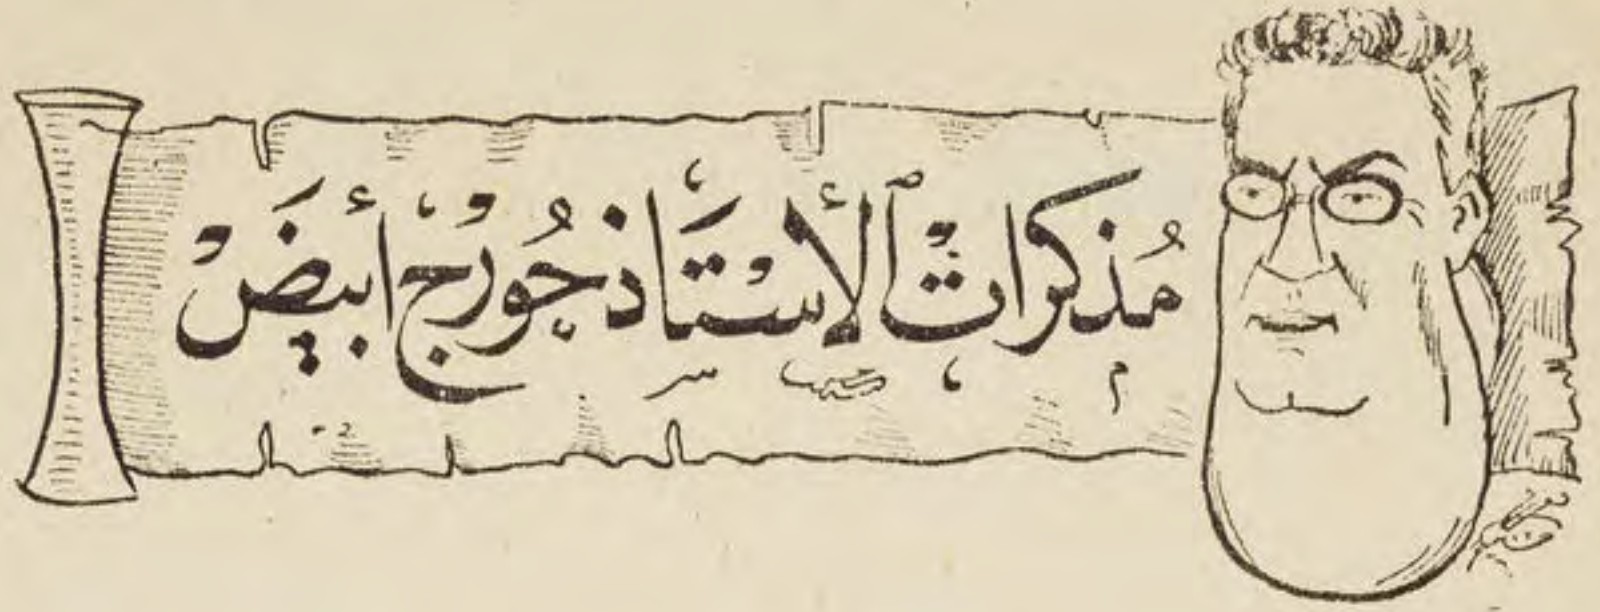 مُذكراتْ ٱلأسْتَاذ جُورْج أبيَضْ